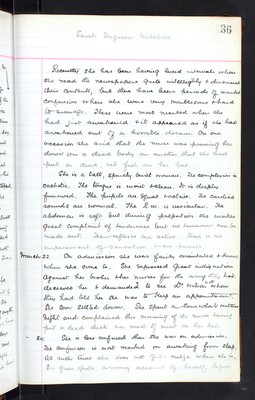 36
Sarah Ferguson
Recently she has been having lucid intervals when
she read the newspapers quite intelligently & discussed
their contents, but there have been periods of marked
confusion when she was very troublesome & hard
to manage. These were most marked when she
had just awakened & it appeared as if she had
awakened out of a horrible dream. On one
occasion she said that the nurse was pressing her
down on a dead body on another that she had
put a dead, wet fish on her bed.
She is a tall, sparely built woman. The complexion is
. The tongue is moist & clean. It is deeply
furrowed. The pupils are equal & active. The cardiac
sounds are normal. The is . The
abdomen is soft but during palpation she makes
great complaint of tenderness but no tumour can be
made out. The reflexes are active. There is no
impairment of sensation
March 22. On admission she was fairly orientated & knew
when she came to. She expressed great indignation
against her brother & her nurse for the way they had
deceived her & demanded to see Dr. when
they had told her she was to keep an appointment.
She soon settled down. She spent a somewhat restless
night and complained this morning of the nurse having
put a dead duck on of meat on her bed.
- 24. She is less confused than she was on admission.
The confusion is most marked on awaking from sleep.
At such times she does not quite realise where she is.
She gives quite a account of herself,